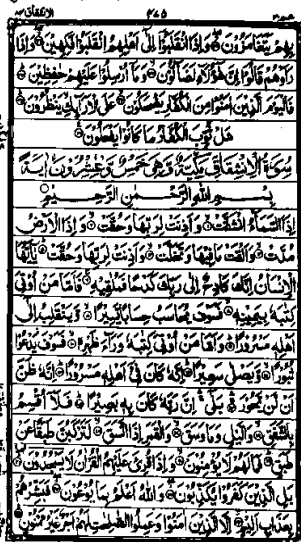 الانشقاق ٨٤
٤٧٥
عم ٣٠
بِهِمْ يَتَغَامَزُوْنَ ۞ وَاِذَا انْقَلَبُوْٓا اِلٰٓى اَهْلِهِمُ انْقَلَبُوْا فَكِهِيْنَ ۞ وَاِذَا
رَاَوْهُمْ قَالُوْٓا اِنَّ هٰٓؤُلَآءِ لَضَآلُّوْنَ ۞ وَمَآ اُرْسِلُوْا عَلَيْهِمْ حٰفِظِيْنَ ۞
فَالْيَوْمَ الَّذِيْنَ اٰمَنُوْا مِنَ الْكُفَّارِ يَضْحَكُوْنَ ۞ عَلَى الْاَرَآئِكِ يَنْظُرُوْنَ ۞
هَلْ ثُوِّبَ الْكُفَّارُ مَا كَانُوْا يَفْعَلُوْنَ ۞
سُوْرَةُ الْاِنْشِقَاقِ مَكِّيَّةٌ وَّهِيَ خَمْسٌ وَّعِشْرُوْنَ اٰيَةً
بِسْمِ اللّٰهِ الرَّحْمٰنِ الرَّحِيْمِ
اِذَا السَّمَآءُ انْشَقَّتْ ۞ وَاَذِنَتْ لِرَبِّهَا وَحُقَّتْ ۞ وَاِذَا الْاَرْضُ
مُدَّتْ ۞ وَاَلْقَتْ مَا فِيْهَا وَتَخَلَّتْ ۞ وَاَذِنَتْ لِرَبِّهَا وَحُقَّتْ ۞ يٰٓاَيُّهَا
الْاِنْسَانُ اِنَّكَ كَادِحٌ اِلٰى رَبِّكَ كَدْحًا فَمُلٰقِيْهِ ۞ فَاَمَّا مَنْ اُوْتِيَ
كِتٰبَهٗ بِيَمِيْنِهٖ ۞ فَسَوْفَ يُحَاسَبُ حِسَابًا يَّسِيْرًا ۞ وَّيَنْقَلِبُ اِلٰٓى
اَهْلِهٖ مَسْرُوْرًا ۞ وَاَمَّا مَنْ اُوْتِيَ كِتٰبَهٗ وَرَآءَ ظَهْرِهٖ ۞ فَسَوْفَ يَدْعُوْا
ثُبُوْرًا ۞ وَّيَصْلٰى سَعِيْرًا ۞ اِنَّهٗ كَانَ فِيْٓ اَهْلِهٖ مَسْرُوْرًا ۞ اِنَّهٗ ظَنَّ
اَنْ لَّنْ يَّحُوْرَ ۞ بَلٰٓى اِنَّ رَبَّهٗ كَانَ بِهٖ بَصِيْرًا ۞ فَلَآ اُقْسِمُ
بِالشَّفَقِ ۞ وَالَّيْلِ وَمَا وَسَقَ ۞ وَالْقَمَرِ اِذَا اتَّسَقَ ۞ لَتَرْكَبُنَّ طَبَقًا عَنْ
طَبَقٍ ۞ فَمَا لَهُمْ لَا يُؤْمِنُوْنَ ۞ وَاِذَا قُرِئَ عَلَيْهِمُ الْقُرْاٰنُ لَا يَسْجُدُوْنَ ۞
بَلِ الَّذِيْنَ كَفَرُوْا يُكَذِّبُوْنَ ۞ وَاللّٰهُ اَعْلَمُ بِمَا يُوْعُوْنَ ۞ فَبَشِّرْهُمْ
بِعَذَابٍ اَلِيْمٍ ۞ اِلَّا الَّذِيْنَ اٰمَنُوْا وَعَمِلُوا الصّٰلِحٰتِ لَهُمْ اَجْرٌ غَيْرُ مَمْنُوْنٍ ۞